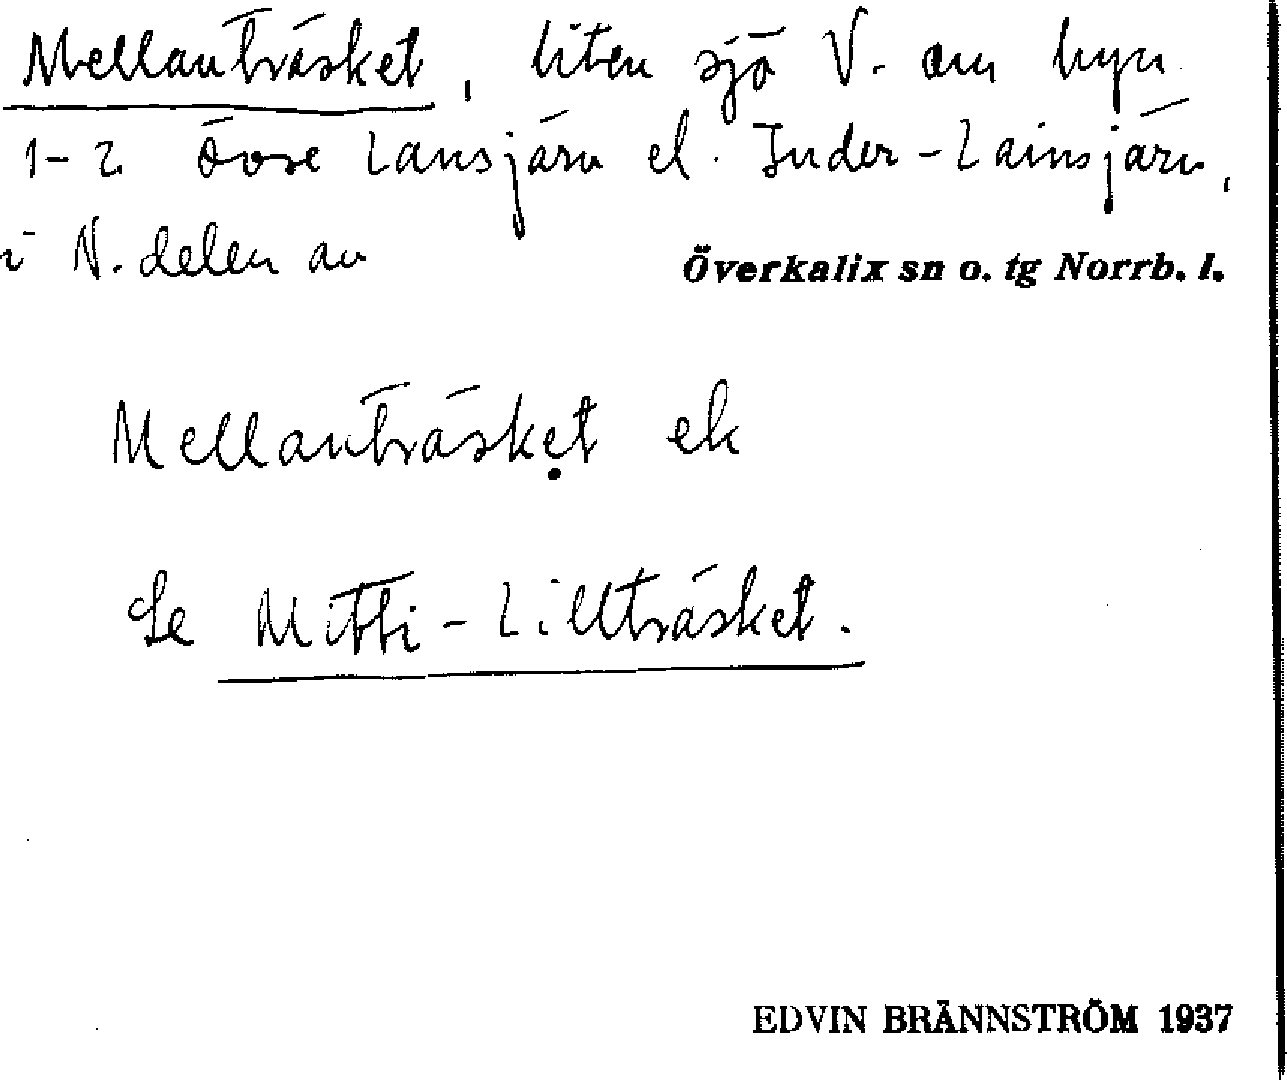 Mellanträsket, liten sjö V. om byn
1-2 Övre Lansjärv el. Inder-Lainsjärv,
i N. delen av Överkalix sn o. tg Norrb. l.
Mellanträsket ek
Se Mitti-Lillträsket.
EDVIN BRÄNNSTRÖM 1937